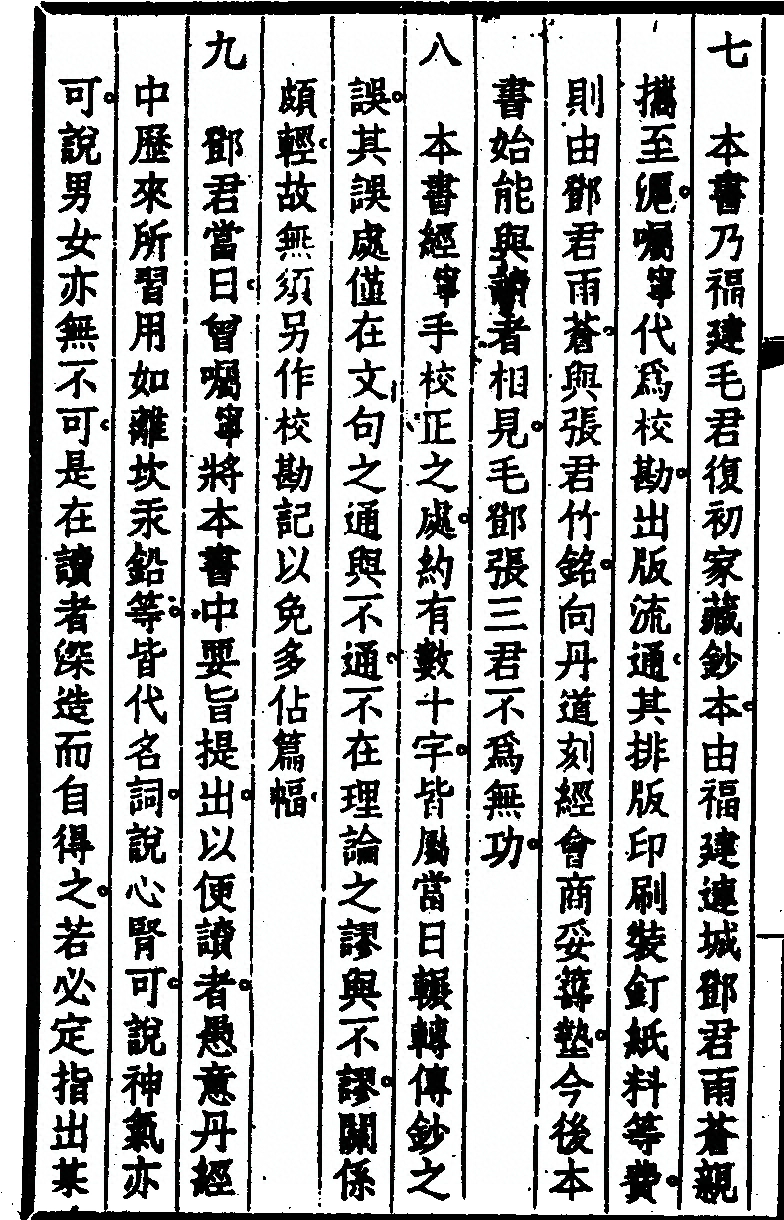 七　本書乃福建毛君復初家藏鈔本。由福建連城鄧君雨蒼親
攜至滬。囑寧代爲校勘。出版流通。其排版印刷裝釘紙料等費。
則由鄧君雨蒼。與張君竹銘。向丹道刻經會商妥籌墊。今後本
書始能與讀者相見。毛鄧張三君不爲無功。
八　本書經寧手校正之處。約有數十字。皆屬當日輾轉傳鈔之
誤。其誤處僅在文句之通與不通。不在理論之謬與不謬。關係
頗輕。故無須另作校勘記以免多佔篇幅。
九　鄧君當日。曾囑寧將本書中要旨提出。以便讀者。愚意丹經
中歷來所習用如離坎汞鉛等。皆代名詞。說心腎可。說神氣亦
可。說男女亦無不可。是在讀者深造而自得之。若必定指出某